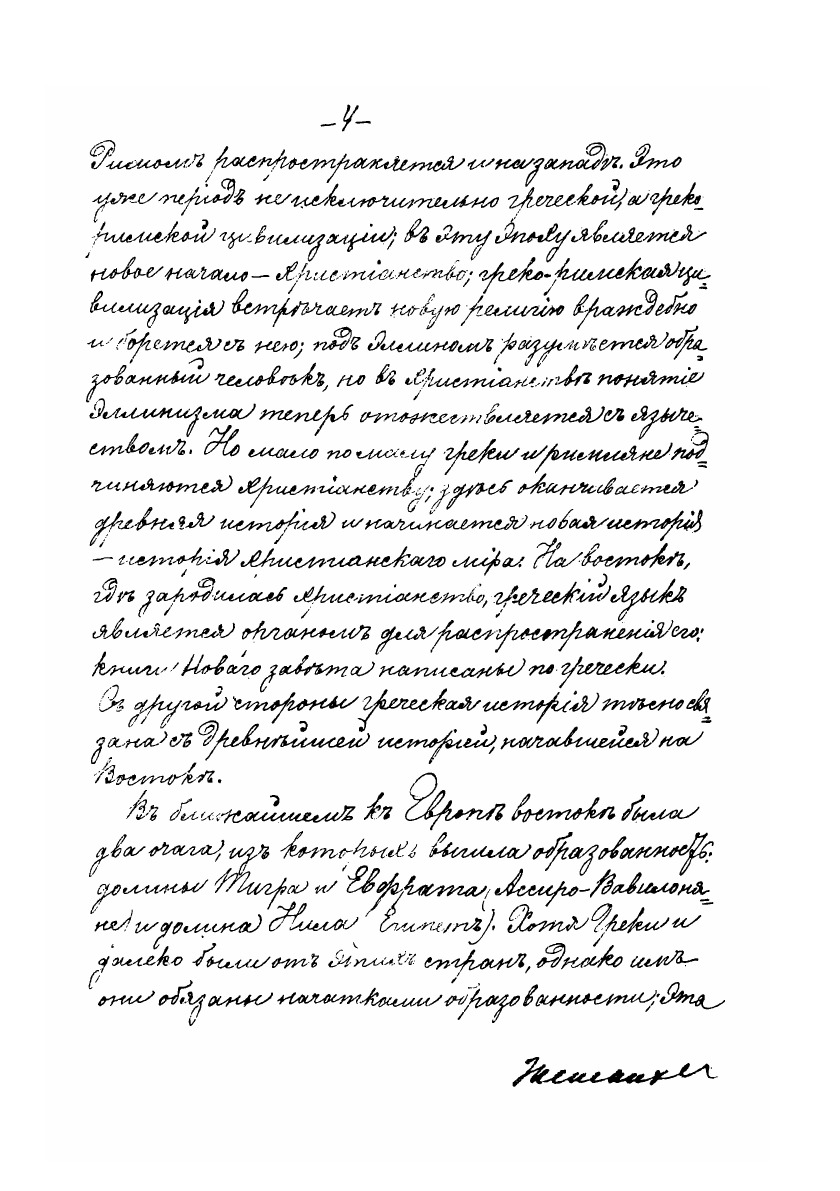 –4–
Римомъ распространяется и на западъ. Это
уже періодъ не исключительно греческой, а греко-
римской цивилизаціи; въ эту эпоху является
новое начало – христіанство; греко-римская ци=
вилизація встрѣчаетъ новую религію враждебно
и борется съ нею; подъ эллиномъ разумѣется обра=
зованный человѣкъ, но въ христіанствѣ понятіе
эллинизма теперь отожествляется съ языче=
ствомъ. Но мало по малу греки и римляне под=
чиняются христіанству; здѣсь оканчивается
древняя исторія и начинается новая исторія
– исторія христіанскаго міра. На востокѣ,
гдѣ зародилась христіанство, греческій языкъ
является органомъ для распространенія его:
книги Новаго завѣта написаны по гречески.
Съ другой стороны греческая исторія тѣсно свя=
зана съ древнѣйшей исторіей, начавшейся на
Востокѣ.
Въ ближайшемъ къ Европѣ востокѣ была
два очага, изъ которыхъ вышла образованность:
долины Тигра и Евфрата (Ассиро-Вавилоня=
не) и долина Нила (Египетъ). Хотя Греки и
далеко были отъ этихъ странъ, однако имъ
они обязаны начатками образованности; эта